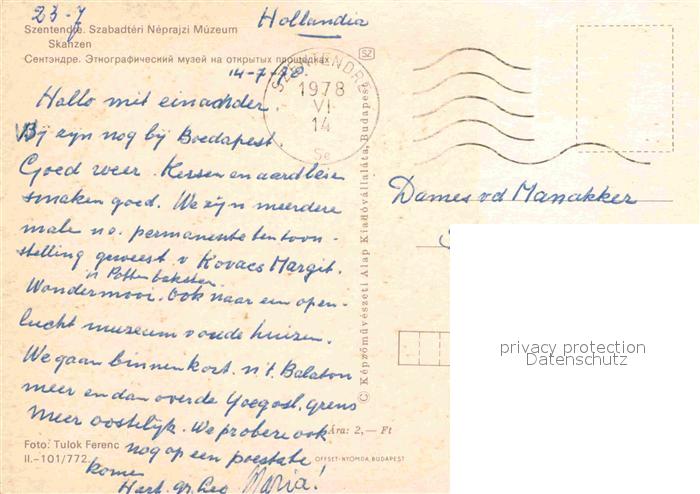 23-7
Hollandia
Szentendre. Szabadtéri Néprajzi Múzeum
Skanzen
Сентэндре. Этнографический музей на открытых площадках
14-7-78.
SZENTENDRE
1978
VI
14
SZ
Hallo mit einander.
Wij zijn nog bij Boedapest.
Goed weer. Kersen en aardbeien
smaken goed. We zijn meerdere
male n.o. permanente tentoon-
stelling geweest v Kovacs Margit.
'n Pottenbakster
Wondermooi. Ook naar een open-
lucht museum v oude huizen.
We gaan binnenkort n 't Balaton
meer en dan over de Yoegosl. grens
meer oostelijk. We probere ook
nog op een poestabe
kome
Hart. gr. Leo Maria!
Foto: Tulok Ferenc
II.-101/772
Ára: 2,— Ft
OFFSET-NYOMDA, BUDAPEST
© Képzőművészeti Alap Kiadóvállalata, Budapest
Dames vd Manakker
privacy protection
Datenschutz